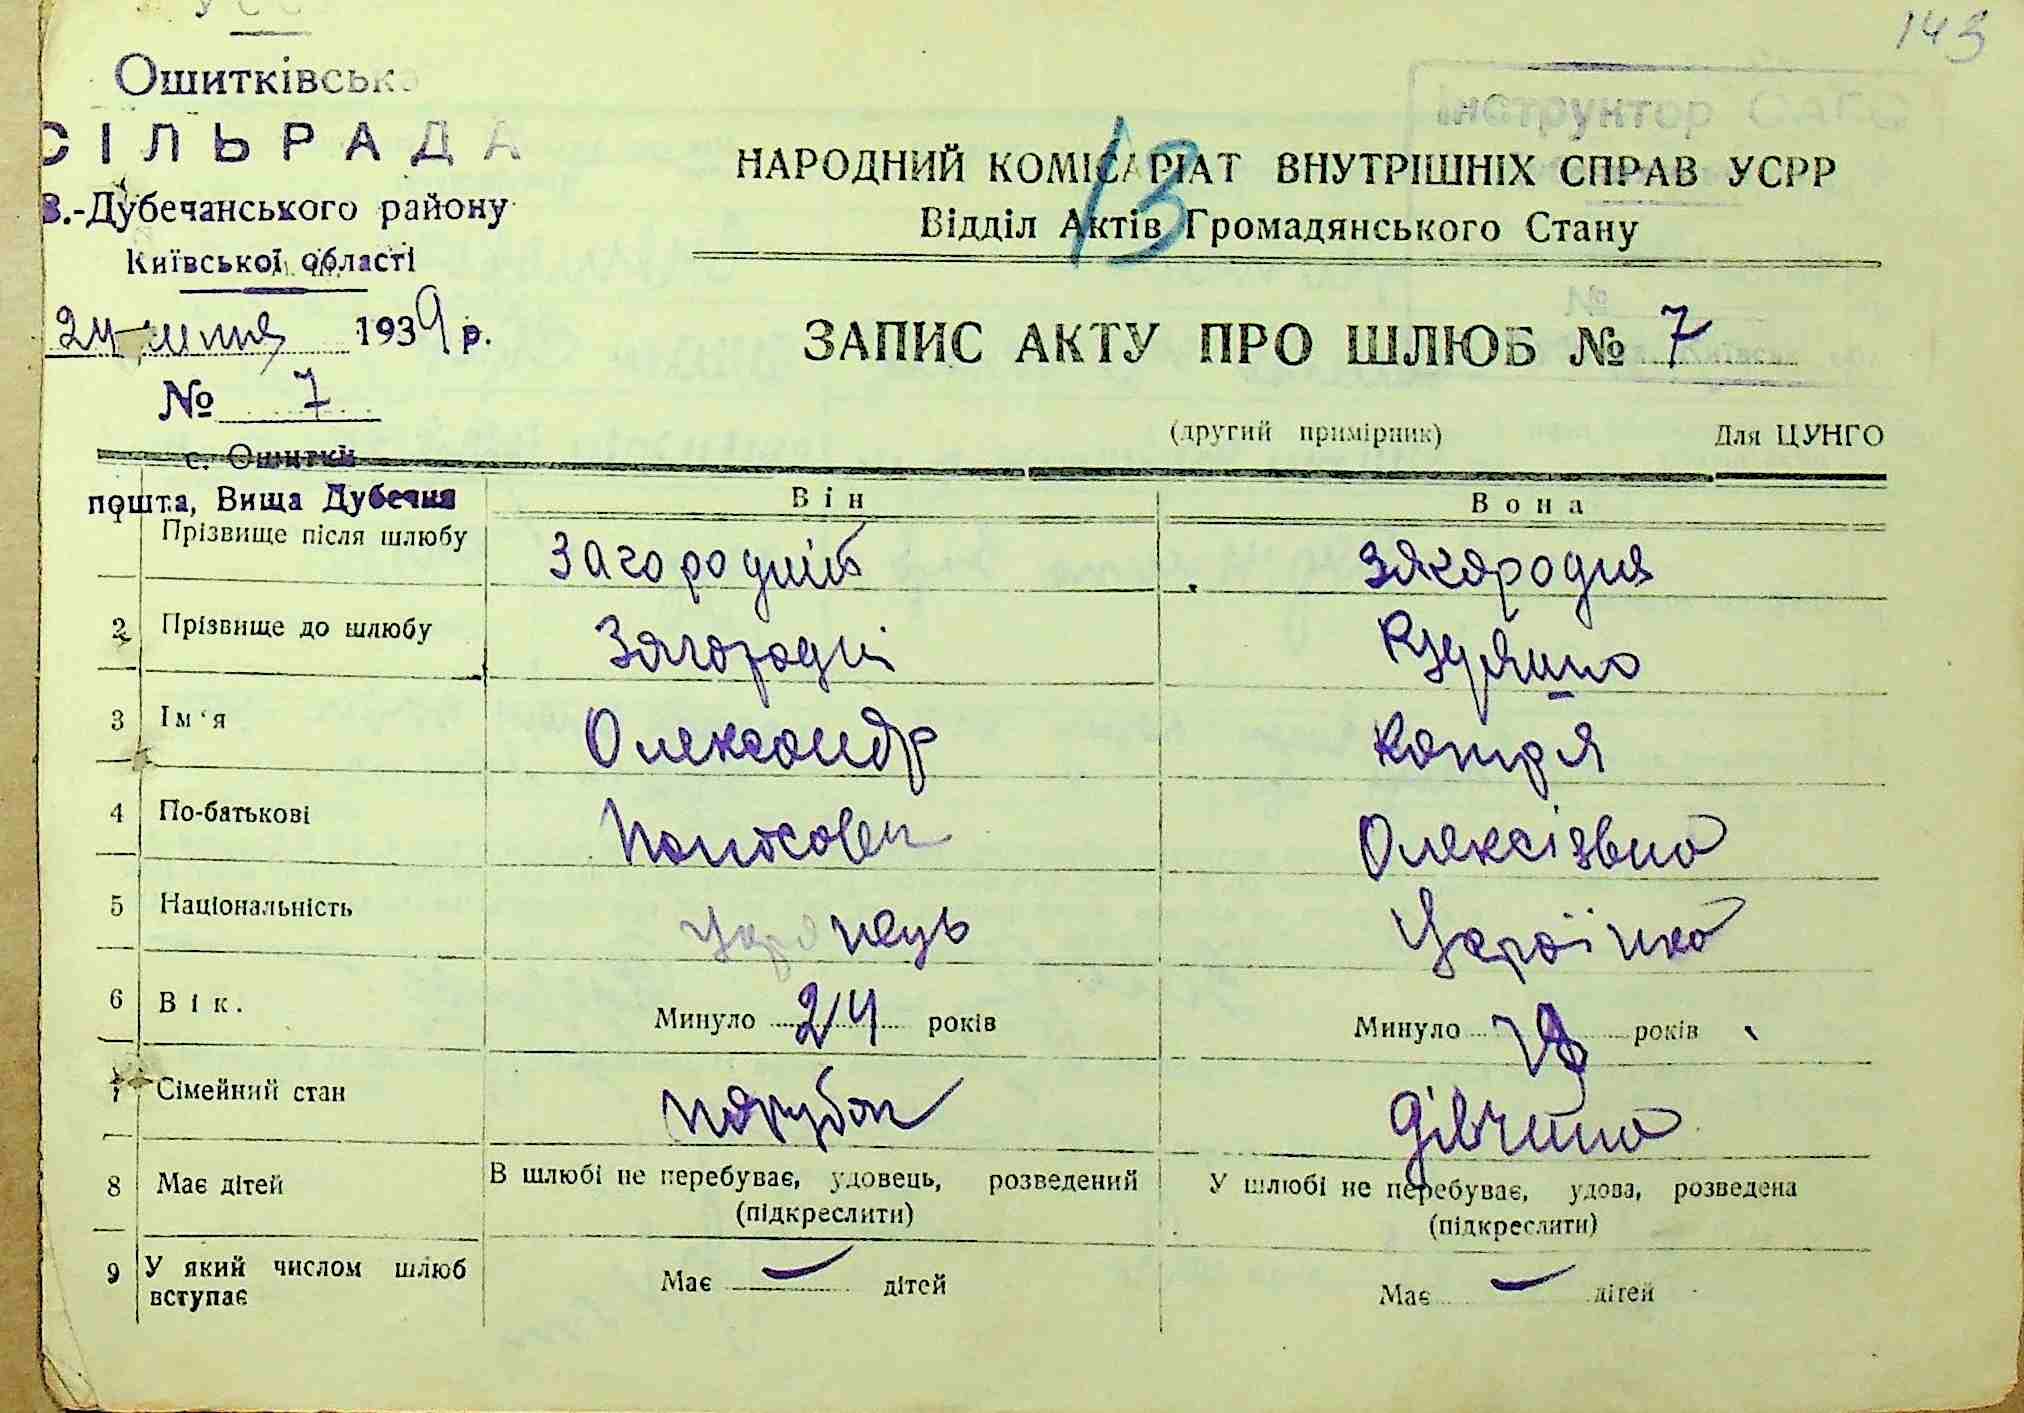 УССР
143
Ошитківська
СІЛЬРАДА
В.-Дубечанського району
Київської області
24 липня 1939 р.
№ 7
с. Ошитки
пошта, Вища Дубечня
Інструктор
13
НАРОДНИЙ КОМІСАРІАТ ВНУТРІШНІХ СПРАВ УСРР
Відділ Актів Громадянського Стану
ЗАПИС АКТУ ПРО ШЛЮБ № 7
(другий примірник) Для ЦУНГО
Він Вона
1 Прізвище після шлюбу Загородній Загородня
2 Прізвище до шлюбу Загородні
3 Ім‘я Олександр Катря
4 По-батькові Олексієвна
5 Національність Українець Українка
6 Вік. Минуло 24 років Минуло 18 років
7 Сімейний стан парубок дівчина
8 Має дітей В шлюбі не перебуває, удовець, розведений У шлюбі не перебуває, удова, розведена
(підкреслити) (підкреслити)
9 У який числом шлюб Має — дітей Має — дітей
вступає